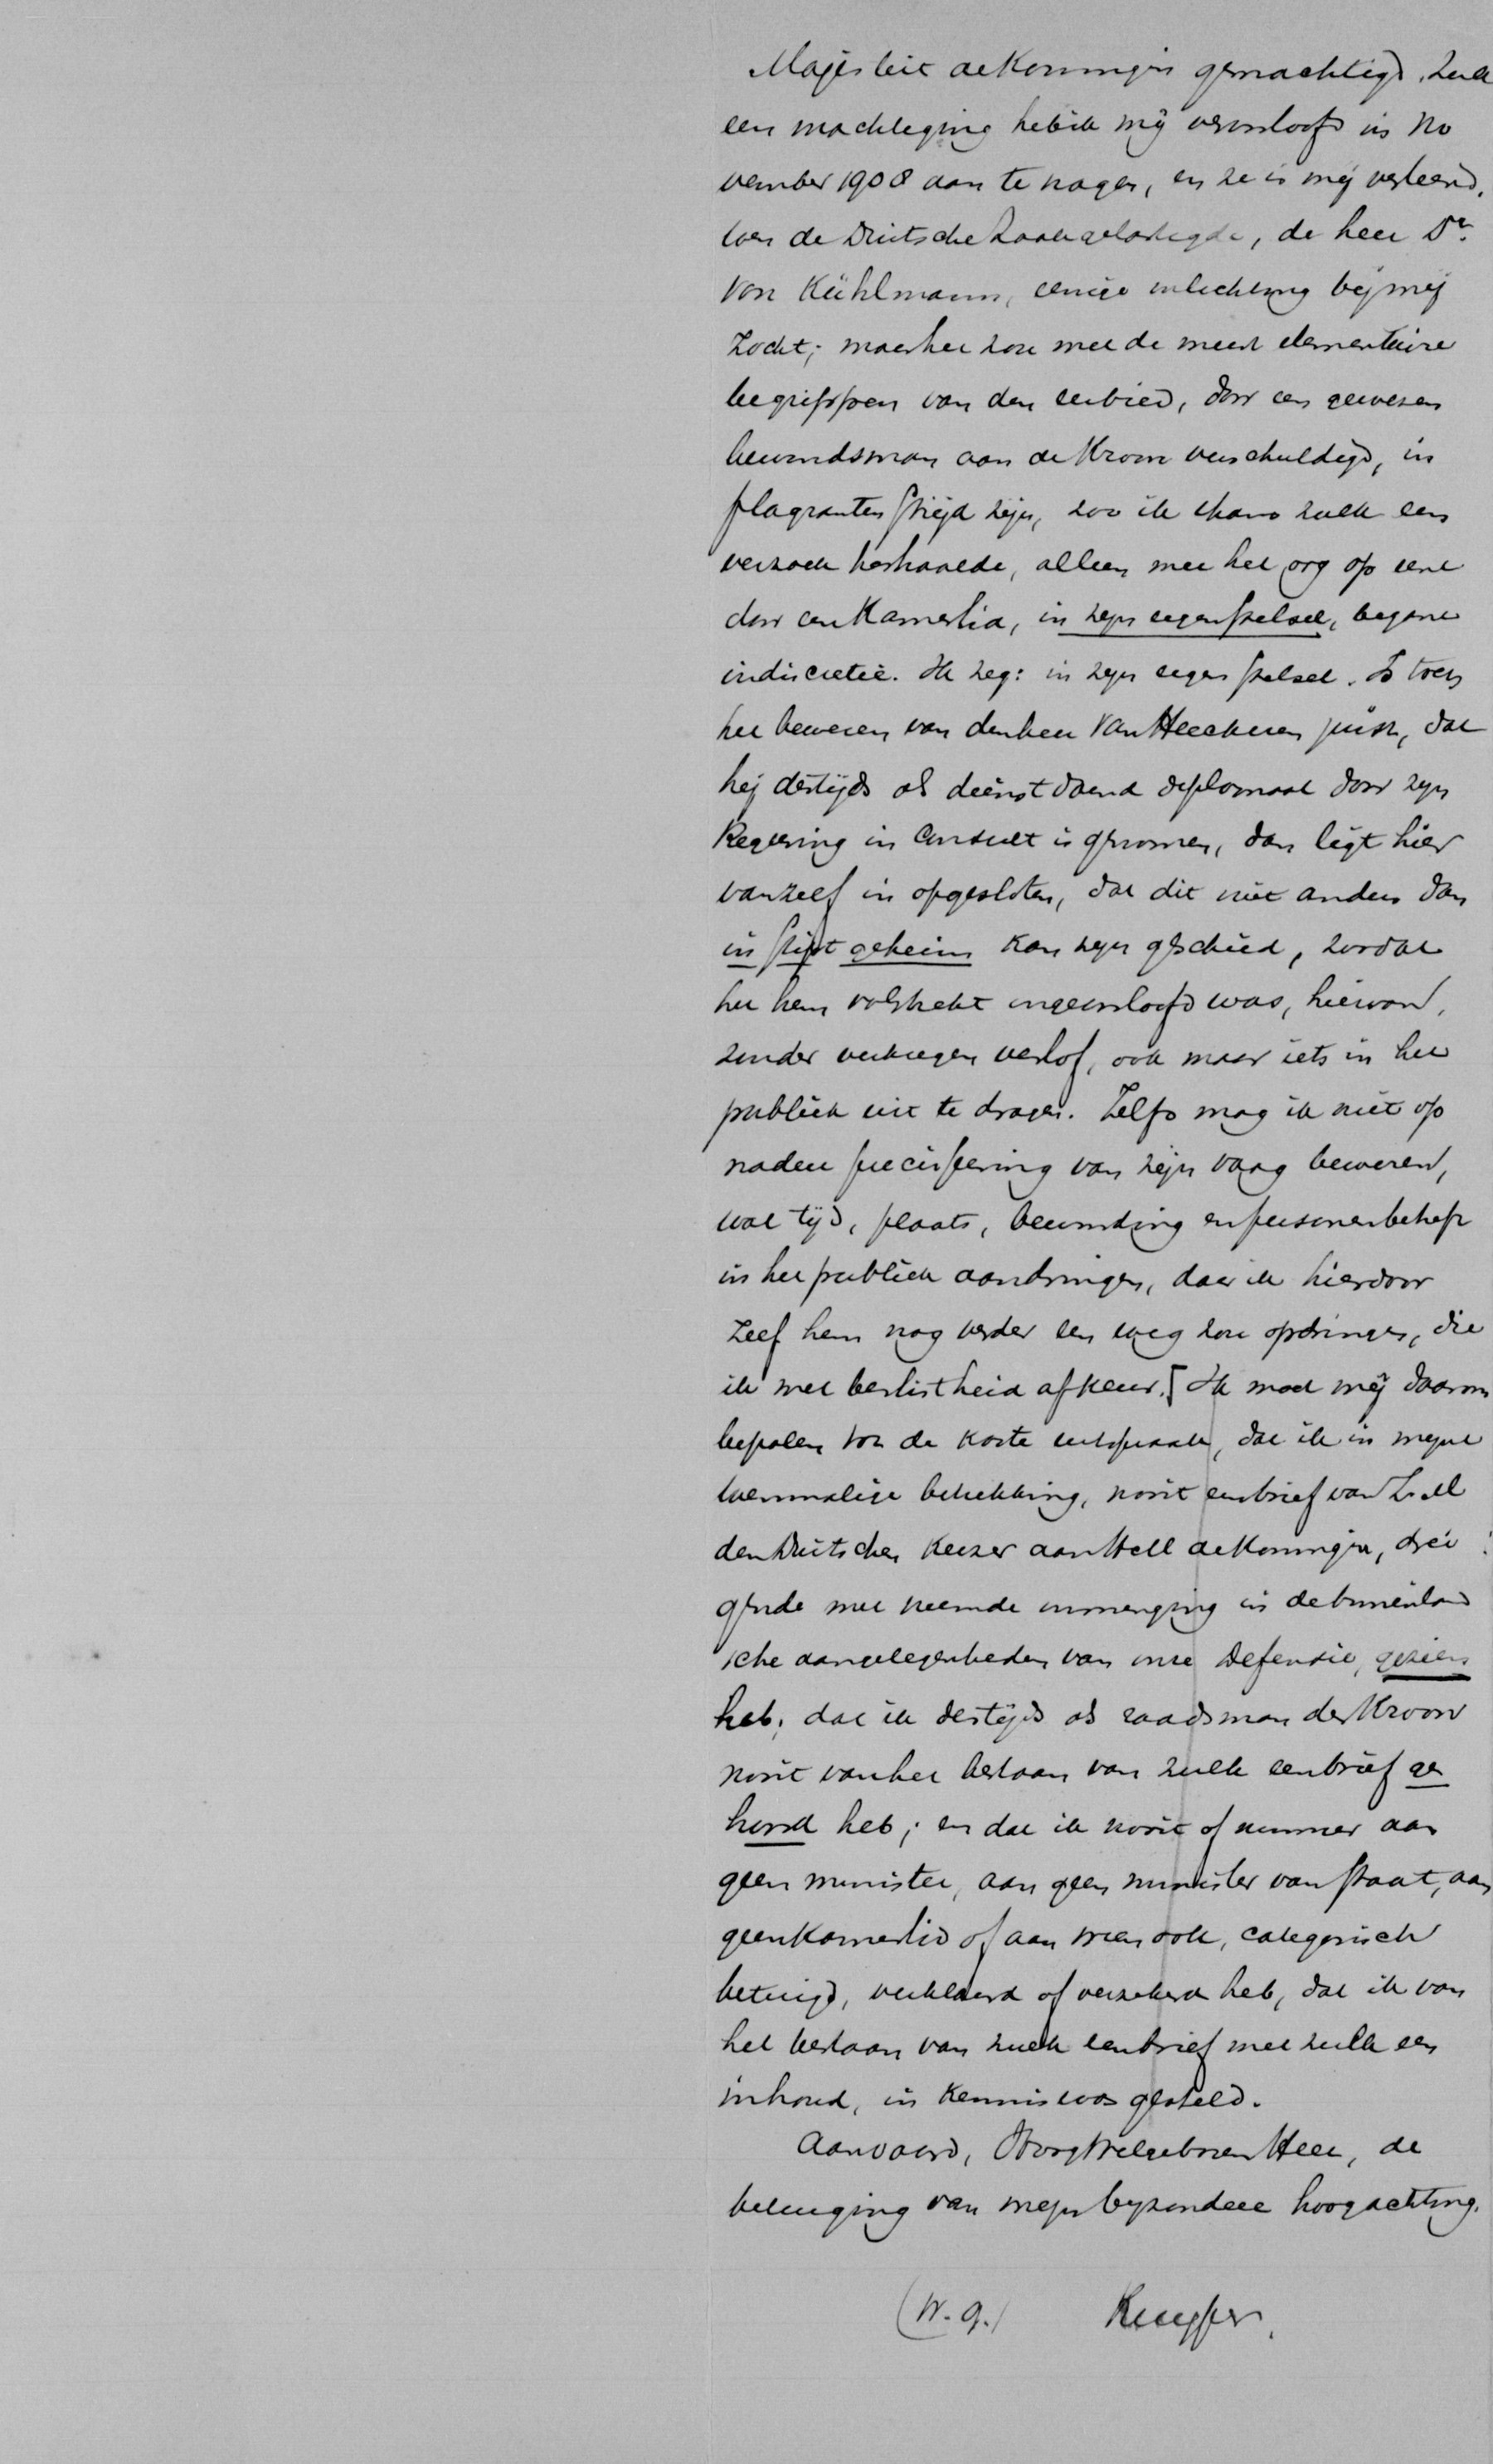 Majesteit de Koningin gemachtigd. Zulk
een machtiging heb ik mij veroorloofd in No
vember 1908 aan te vragen, en ze is mij verleend,
toen de Duitsche Zaakgelastigde, de heer Dr.
von Kühlmann, eenige inlichting bij mij
zocht; maar het zou met de meest elementaire
begrippen van den eerbied, door een gewezen
bewindsman aan de Kroon verschuldigd, in
flagranten strijd zijn, zoo ik thans zulk een
verzoek herhaalde, alleen met het oog op eene
door een Kamerlid, in zijn eigen stelsel, begane
indiscretie. Ik zeg: in zijn eigen stelsel. Is toch
het beweren van den heer Van Heeckeren juist, dat
hij destijds als dienstdoend diplomaat door zijn
Regeering in consult is genomen, dan ligt hier
vanzelf in opgesloten, dat dit niet anders dan
in stipt geheim kan zijn geschied, zoodat
het hem volstrekt ongeoorloofd was, hiervan,
zonder verkregen verlof, ook maar iets in het
publiek uit te dragen. Zelfs mag ik niet op
nadere precisеering van zijn vaag beweren,
wat tijd, plaats, bewording en personen betreft
in het publiek aandringen, daar ik hierdoor
zelf hem nog verder een weg zou opdringen, die
ik met beslistheid afkeur. [Ik moet mij daarom
bepalen tot de korte uitspraak, dat ik in mijne
toenmalige betrekking, nooit een brief van Z. M
den Duitschen Keizer aan H M de Koningin, drei
gende met vreemde inmenging in de binnenland
sche aangelegenheden van onze Defensie, gezien
heb; dat ik destijds als raadsman der Kroon
nooit van het bestaan van zulk een brief ge
hoord heb; en dat ik nooit of nimmer aan
geen minister, aan geen minister van staat, aan
geen Kamerlid of aan wien ook, categorisch
betuigd, verklaard of verzekerd heb, dat ik van
het bestaan van zulk een brief met zulk een
inhoud, in kennis was gesteld.
Aanvaard, Hoog Welgeboren Heer, de
betuiging van mijn bijzondere hoogachting.
(w. g.) Kuyper.